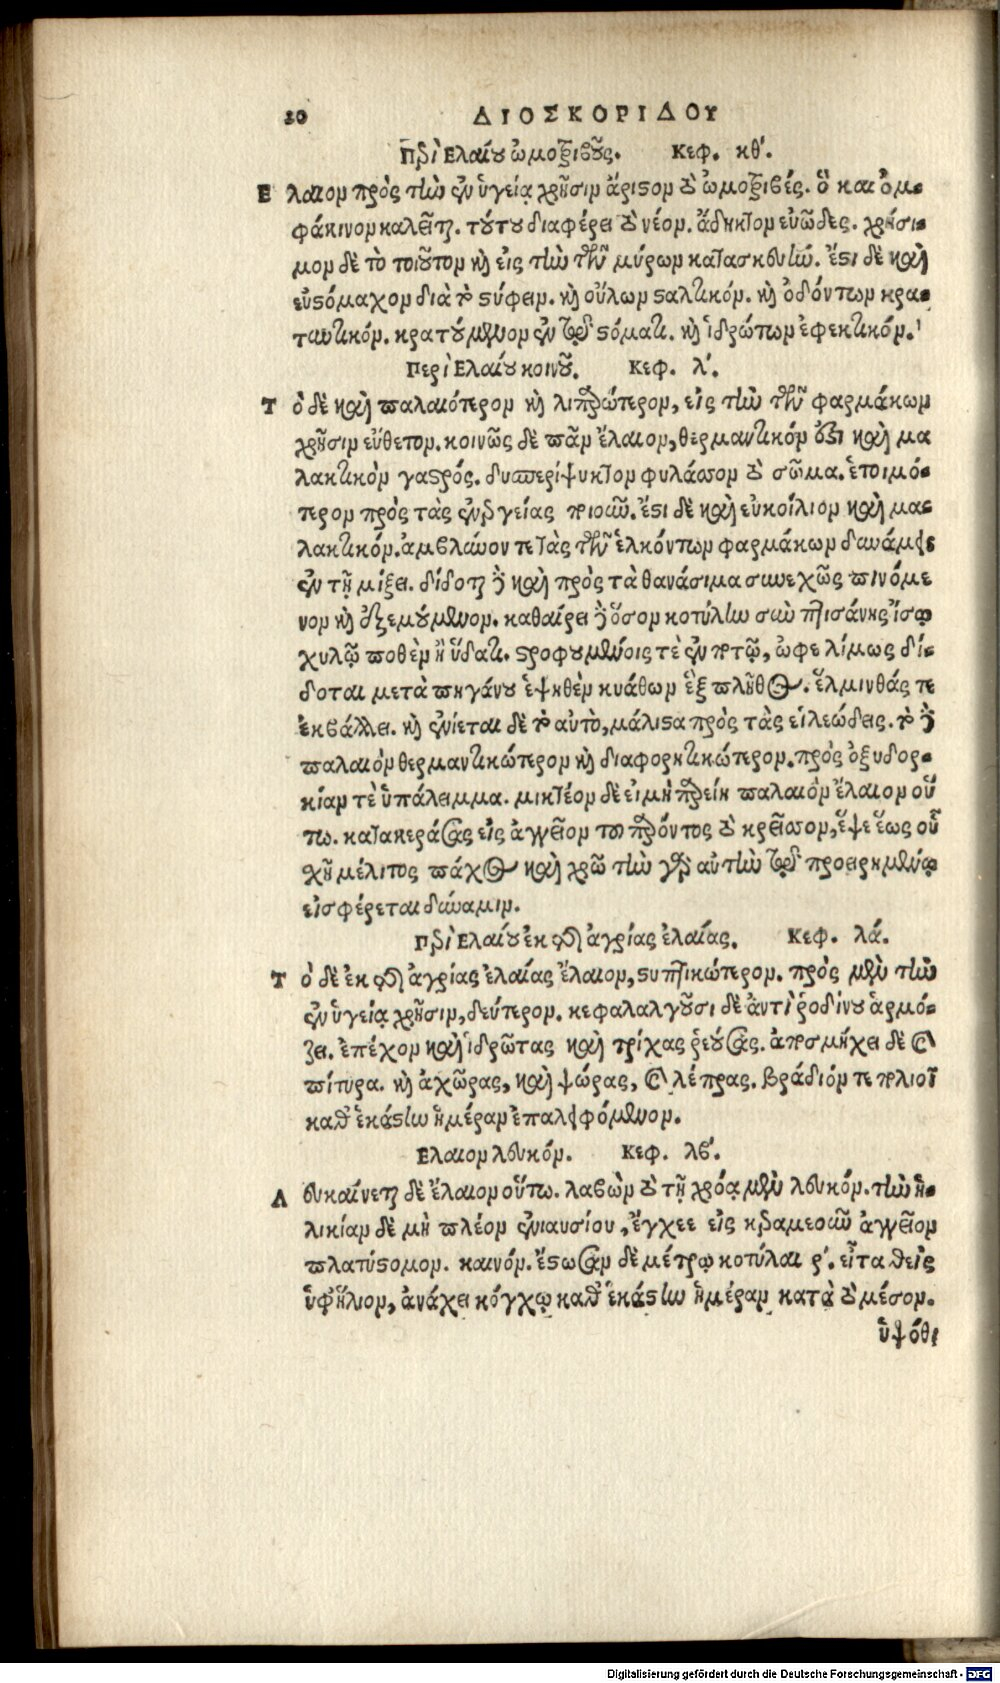 20 ΔΙΟΣΚΟΡΙΔΟΥ
Περὶ Ελαίου ὠμοτριβοῦς. Κεφ. κθʹ.
Ελαιον πρὸς τὴν ἐν ὑγείᾳ χρῆσιν ἄριστον τὸ ὠμοτριβές. ὃ και ὀμ-
φάκινον καλεῖται. τούτου διαφέρει τὸ νέον. ἄδηκτον εὐῶδες. χρήσι-
μον δὲ τὸ τοιοῦτον καὶ εἰς τὴν τῶν μύρων κατασκευήν. ἔστι δὲ καὶ
εὐστόμαχον διὰ τὸ στύφειν. καὶ οὔλων σταλτικόν. καὶ ὀδόντων κρα-
τυντικόν. κρατούμενον ἐν τῷ στόματι. καὶ ἱδρώτων ἐφεκτικόν.
Περὶ Ελαίου κοινοῦ. Κεφ. λʹ.
Τὸ δὲ καὶ παλαιότερον καὶ λιπαρώτερον, εἰς τὴν τῶν φαρμάκων
χρῆσιν εὔθετον. κοινῶς δὲ πᾶν ἔλαιον, θερμαντικόν ἐστι καὶ μα
λακτικὸν γαστρός. δυσπερίψυκτον φυλάσσον τὸ σῶμα. ἑτοιμό-
τερον πρὸς τὰς ἐνεργείας ποιοῦν. ἔστι δὲ καὶ εὐκοίλιον καὶ μα-
λακτικόν. ἀμβλῦνον τε τὰς τῶν ἑλκόντων φαρμάκων δυνάμεις
ἐν τῇ μίξει. δίδοται δὲ καὶ πρὸς τὰ θανάσιμα συνεχῶς πινόμε
νον καὶ ἐξεμούμενον. καθαίρει δὲ ὅσον κοτύλην σὺν πτισάνης ἴσῳ
χυλῷ ποθὲν ἢ ὕδατι. στροφουμένοις τὲ ἐν ποτῷ, ὠφελίμως δί-
δοται μετὰ πηγάνου ἑψηθὲν κυάθων ἓξ πλῆθος. ἕλμινθάς τε
ἐκβάλλει. καὶ ἐνίεται δὲ τὸ αὐτὸ, μάλιστα πρὸς τὰς εἰλεώδεις. τὸ δὲ
παλαιὸν θερμαντικώτερον καὶ διαφορητικώτερον. πρὸς ὀξυδορ-
κίαν τὲ ὑπάλειμμα. μικτέον δὲ εἰ μὴ παρείη παλαιὸν ἔλαιον οὕ
τω. κατακεράσας εἰς ἀγγεῖον τοῦ παρόντος τὸ κρεῖσσον, ἕψε ἕως οὗ
σχῇ μέλιτος πάχος καὶ χρῶ τὴν γὰρ αὐτὴν τῷ προειρημένῳ
εἰσφέρεται δύναμιν.
Περὶ Ελαίου ἐκ τῆς ἀγρίας ἐλαίας. Κεφ. λά.
Τὸ δὲ ἐκ τῆς ἀγρίας ἐλαίας ἔλαιον, στυπτικώτερον. πρὸς μὲν τὴν
ἐν ὑγείᾳ χρῆσιν, δεύτερον. κεφαλαλγοῦσι δὲ ἀντὶ ῥοδίνου ἁρμό-
ζει. ἐπέχον καὶ ἱδρῶτας καὶ τρίχας ῥεούσας. ἀποσμήχει δὲ καὶ
πίτυρα. καὶ ἀχῶρας, καὶ ψώρας, καὶ λέπρας. βράδιόν τε πολιοῖ
καθ' ἑκάστην ἡμέραν ἐπαλειφόμενον.
Ελαιον λευκόν. Κεφ. λβʹ.
Λευκαίνεται δὲ ἔλαιον οὕτω. λαβὼν τὸ τῇ χρόᾳ μὲν λευκόν. τὴν ἡ-
λικίαν δὲ μὴ πλέον ἐνιαυσίου, ἔγχεε εἰς κεραμεοῦν ἀγγεῖον
πλατύστομον. καινόν. ἔστωσαν δὲ μέτρῳ κοτύλαι ρʹ. εἶτα θεὶς
ὑφ' ἥλιον, ἀνάχει κόγχῳ καθ' ἑκάστην ἡμέραν κατὰ τὸ μέσον.
ὑψόθε
Digitalisierung gefördert durch die Deutsche Forschungsgemeinschaft - DFG